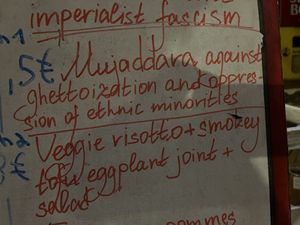 imperialist fascism
5€ Mujaddara against
ghettoization and oppres-
sion of ethnic minorities
Veggie risotto + smokey
tofu eggplant joint +
salad
pommes